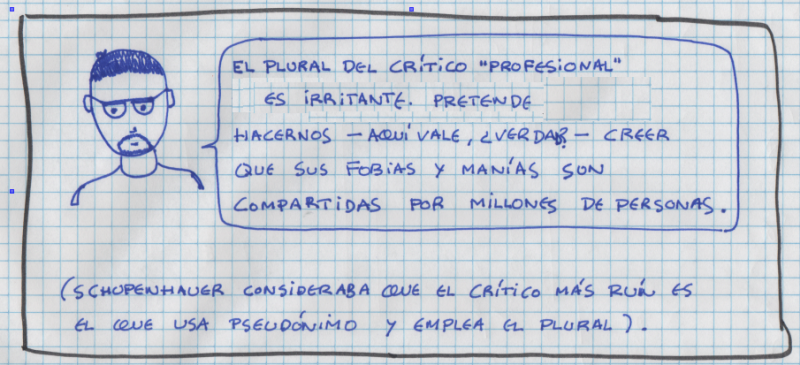 EL PLURAL DEL CRÍTICO "PROFESIONAL"
ES IRRITANTE. PRETENDE
HACERNOS – AQUÍ VALE, ¿VERDAD? – CREER
QUE SUS FOBIAS Y MANÍAS SON
COMPARTIDAS POR MILLONES DE PERSONAS.
(SCHOPENHAUER CONSIDERABA QUE EL CRÍTICO MÁS RUÍN ES
EL QUE USA PSEUDÓNIMO Y EMPLEA EL PLURAL).